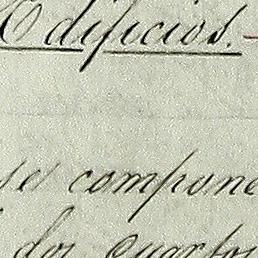 Edificios.
se compone
dos cuartos